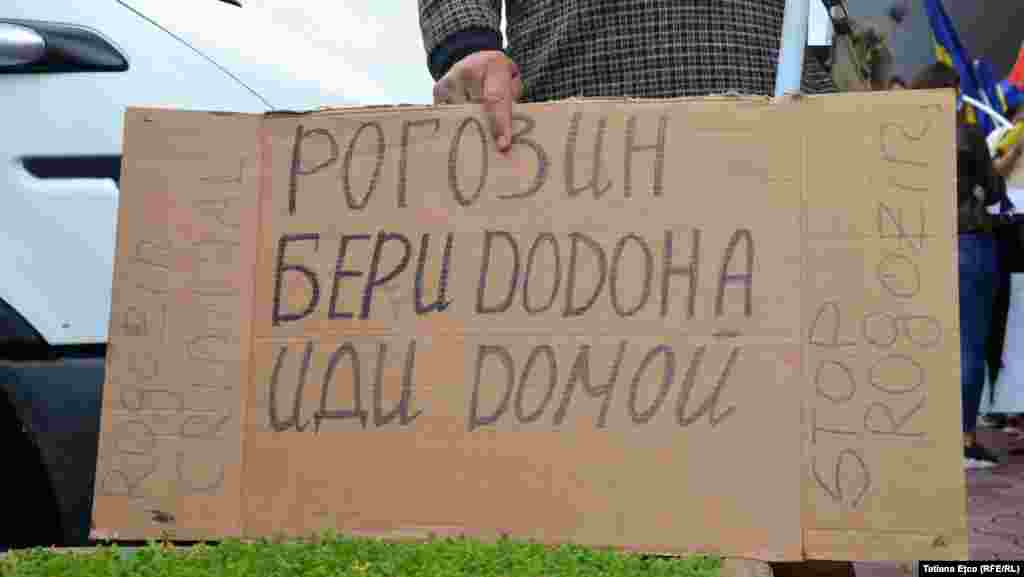 РОГОЗИН
БЕРИ DODOНА
ИДИ DОМОЙ
ROGOZIN
CRIMINAL
STOP
ROGOZIN
Tatiana Ețco (RFE/RL)